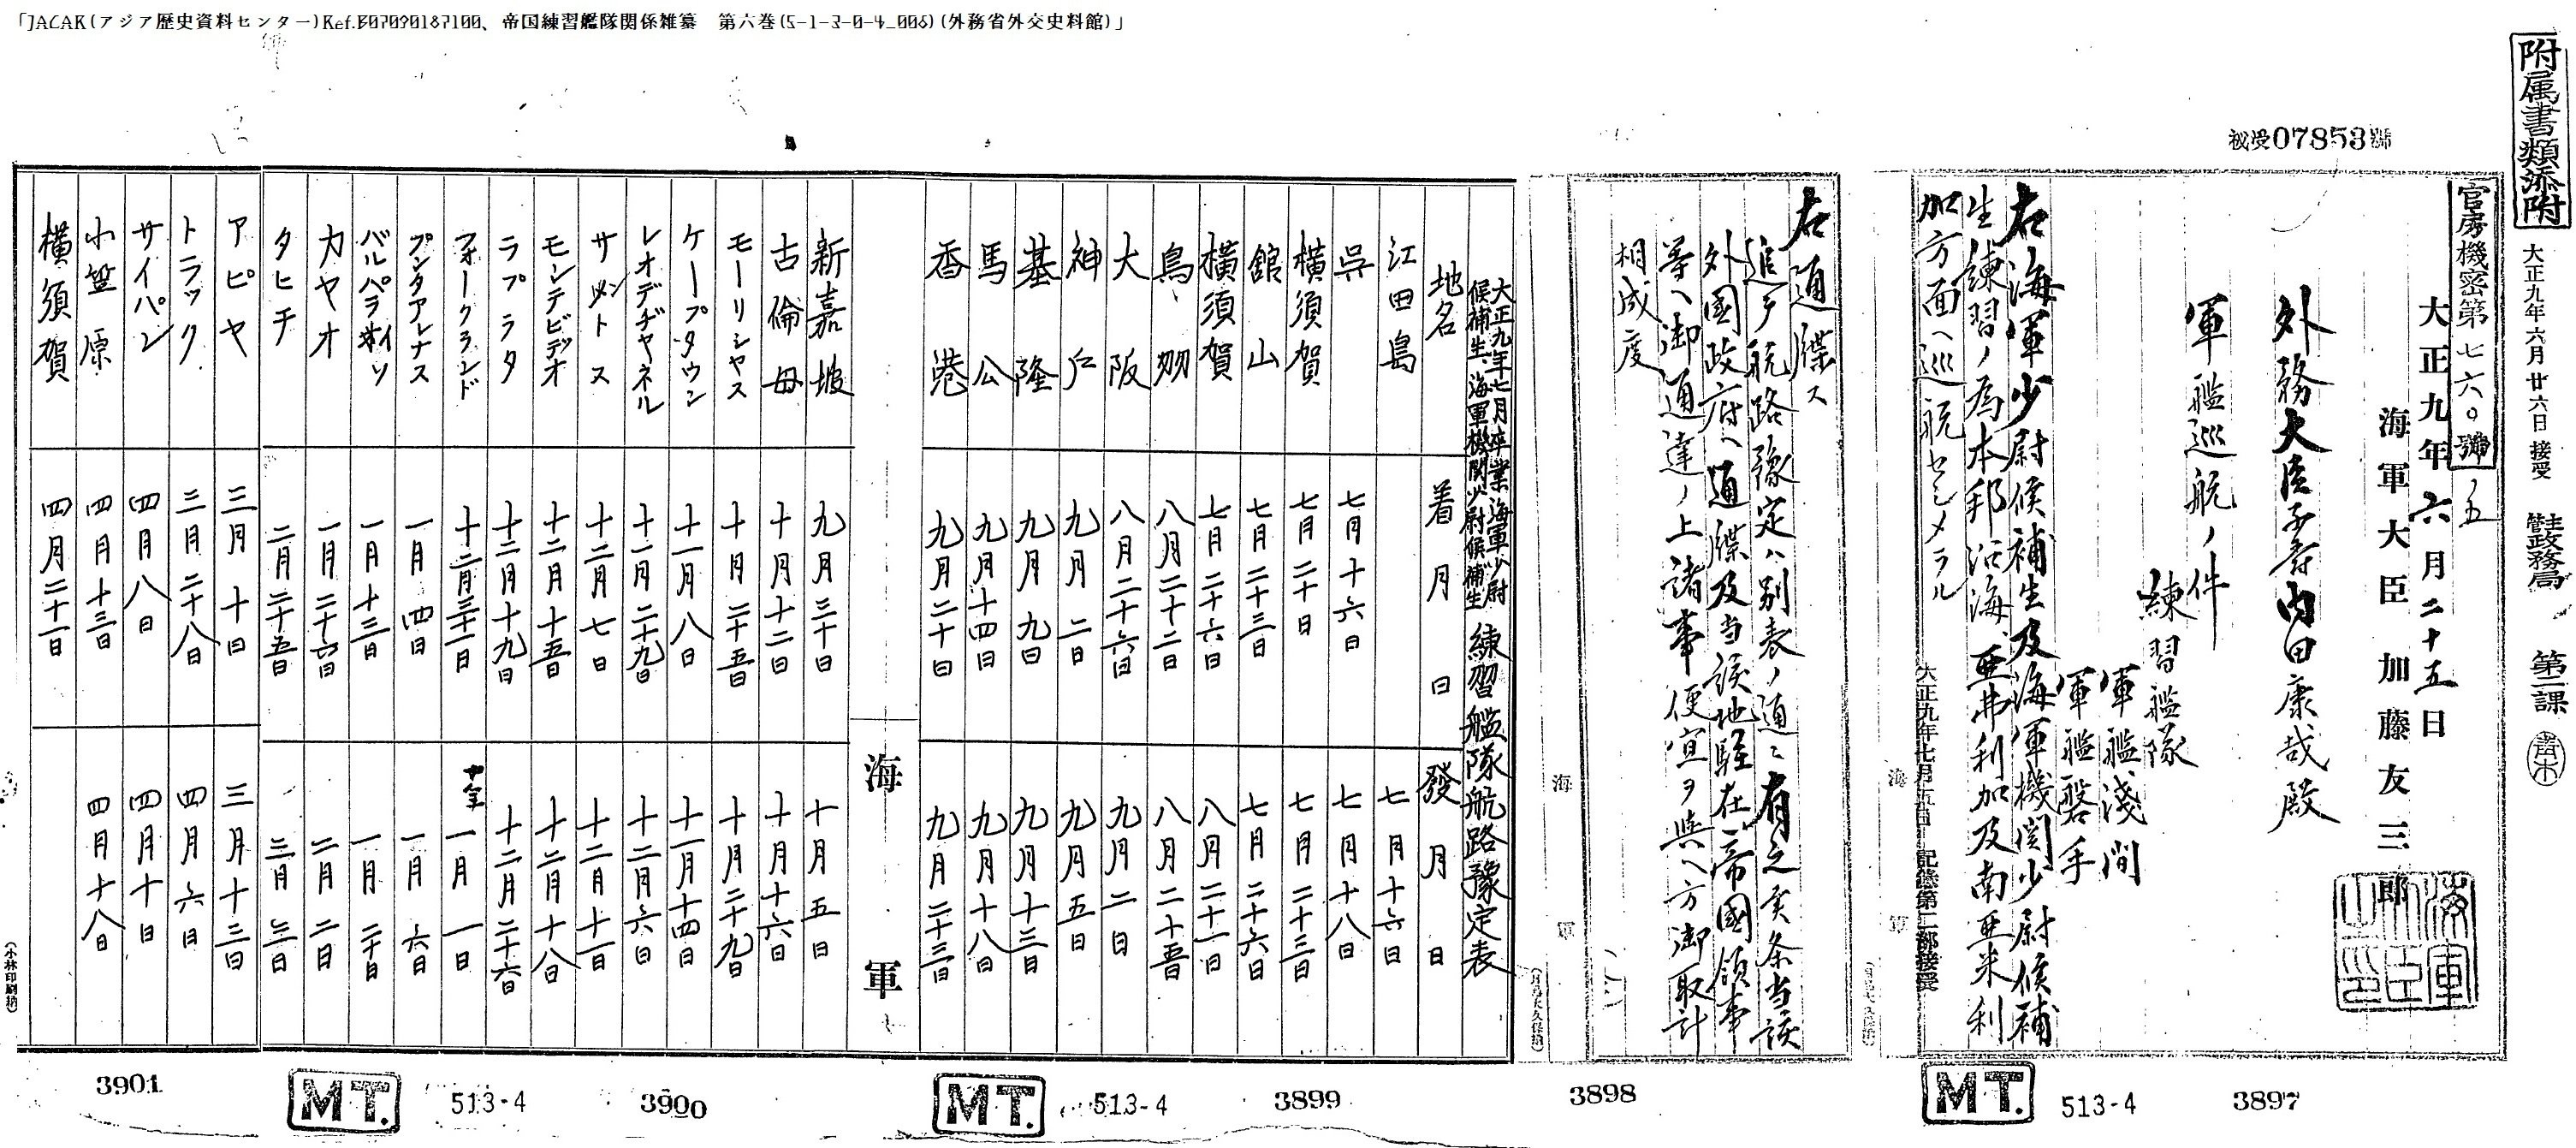 「JACAR(アジア歴史資料センター)Ref.B07090187100、帝国練習艦隊関係雑纂　第六巻(5-1-3-0-4_006)(外務省外交史料館)」
附属書類添附
大正九年六月廿六日接受
主管政務局
第一課
青木
秘受07853號
官房機密第七六〇號ノ五
大正九年六月二十五日
海軍大臣加藤友三郎
外務大臣子爵内田康哉殿
軍艦巡航ノ件
練習艦隊
軍艦淺間
軍艦磐手
右海軍少尉候補生及海軍機関少尉候補
生練習ノ為本邦沿海亜弗利加及南亜米利
加方面ヘ巡航セシメラル
大正九年七月五日
記録第二部接受
海軍
右通牒ス
追テ航路豫定ハ別表ノ通ニ有之候条当該
外國政府ヘ通牒及当該地駐在帝國領事
等ヘ御通達ノ上諸事便宜ヲ與ヘ方御取計
相成度
海軍
大正九年七月卒業海軍少尉
候補生、海軍機関少尉候補生
練習艦隊航路豫定表
地名　着月日　發月日
江田島　七月十六日
呉　七月十六日　七月十八日
横須賀　七月二十日　七月二十三日
館山　七月二十三日　七月二十六日
横須賀　七月二十六日　八月二十一日
鳥羽　八月二十二日　八月二十五日
大阪　八月二十六日　九月二日
神戸　九月二日　九月五日
基隆　九月九日　九月十三日
馬公　九月十四日　九月十八日
香港　九月二十日　九月二十三日
海軍
新嘉坡　九月三十日　十月五日
古倫母　十月十二日　十月十六日
モーリシャス　十月二十五日　十月二十九日
ケープタウン　十一月八日　十一月十四日
レオデヂヤネル　十一月二十九日　十二月六日
サントス　十二月七日　十二月十一日
モンテビデオ　十二月十五日　十二月十八日
ラプラタ　十二月十九日　十二月二十六日
フォークランド　十二月三十一日　十年一月一日
プンタアレナス　一月四日　一月六日
バルパライソ　一月十三日　一月二十日
カヤオ　一月二十六日　二月二日
タヒチ　二月二十五日　三月三日
アピヤ　三月十日　三月十三日
トラック　三月二十八日　四月六日
サイパン　四月八日　四月十日
小笠原　四月十三日　四月十八日
横須賀　四月二十一日
(小林印刷納)
MT.
513-4
3897
3898
3899
MT.
513-4
3900
MT.
513-4
3901